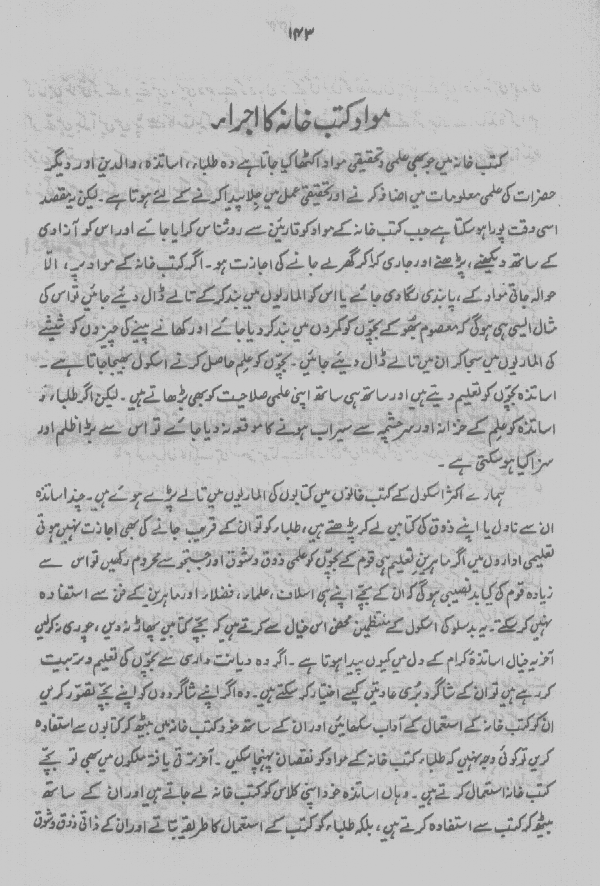 ۱۴۳
مواد کتب خانہ کا اجراء
کتب خانہ میں جو بھی علمی و تحقیقی مواد اکٹھا کیا جاتا ہے وہ طلباء، اساتذہ، والدین اور دیگر
حضرات کی علمی معلومات میں اضافہ کرنے اور تحقیقی عمل میں جِلا پیدا کرنے کے لئے ہوتا ہے۔ لیکن یہ مقصد
اسی وقت پورا ہو سکتا ہے جب کتب خانہ کے مواد کو قارئین سے روشناس کرایا جائے اور اس کو آزادی
کے ساتھ دیکھنے، پڑھنے اور جاری کرا کر گھر لے جانے کی اجازت ہو۔ اگر کتب خانہ کے مواد پر، الّا
حوالہ جاتی مواد کے، پابندی لگا دی جائے یا اس کو الماریوں میں بند کر کے تالے ڈال دیئے جائیں تو اس کی
مثال ایسی ہی ہوگی کہ معصوم بھوکے بچّوں کو کمروں میں بند کر دیا جائے اور کھانے پینے کی چیزوں کو شیشے
کی الماریوں میں سجا کر ان میں تالے ڈال دیئے جائیں۔ بچّوں کو علم حاصل کرنے اسکول بھیجا جاتا ہے۔
اساتذہ بچّوں کو تعلیم دیتے ہیں اور ساتھ ہی ساتھ اپنی علمی صلاحیت کو بھی بڑھاتے ہیں۔ لیکن اگر طلباء و
اساتذہ کو علم کے خزانہ اور سرچشمہ سے سیراب ہونے کا موقعہ نہ دیا جائے تو اس سے بڑا ظلم اور
سزا کیا ہو سکتی ہے۔
ہمارے اکثر اسکول کے کتب خانوں میں کتابوں کی الماریوں میں تالے پڑے ہوئے ہیں۔ چند اساتذہ
ان سے ناول یا اپنے ذوق کی کتابیں لے کر پڑھتے ہیں، طلباء کو تو ان کے قریب جانے کی بھی اجازت نہیں ہوتی
تعلیمی اداروں میں اگر ماہرینِ تعلیم ہی قوم کے بچّوں کو علمی ذوق و شوق اور جستجو سے محروم رکھیں تو اس سے
زیادہ قوم کی کیا بدنصیبی ہوگی کہ ان کے بچّے اپنے ہی اسلاف، علماء، فضلاء اور ماہرین کے فن سے استفادہ
نہیں کر سکتے۔ یہ بدسلوکی اسکول کے منتظمین محض اس خیال سے کرتے ہیں کہ بچّے کتابیں پھاڑ نہ دیں، چوری نہ کر لیں
آخر یہ خیال اساتذۂ کرام کے دل میں کیوں پیدا ہوتا ہے۔ اگر وہ دیانت داری سے بچّوں کی تعلیم و تربیت
کر رہے ہیں تو ان کے شاگرد بُری عادتیں کیسے اختیار کر سکتے ہیں۔ وہ اگر اپنے شاگردوں کو اپنے بچّے تصوّر کریں
ان کو کتب خانہ کے استعمال کے آداب سکھائیں اور ان کے ساتھ خود کتب خانہ میں بیٹھ کر کتابوں سے استفادہ
کریں تو کوئی وجہ نہیں کہ طلباء کتب خانہ کے مواد کو نقصان پہنچا سکیں۔ آخر ترقی یافتہ ملکوں میں بھی تو بچّے
کتب خانہ استعمال کرتے ہیں۔ وہاں اساتذہ خود اپنی کلاس کو کتب خانہ لے جاتے ہیں اور ان کے ساتھ
بیٹھ کر کتب سے استفادہ کرتے ہیں، بلکہ طلباء کو کتب کے استعمال کا طریقہ بتاتے اور ان کے ذاتی ذوق و شوق